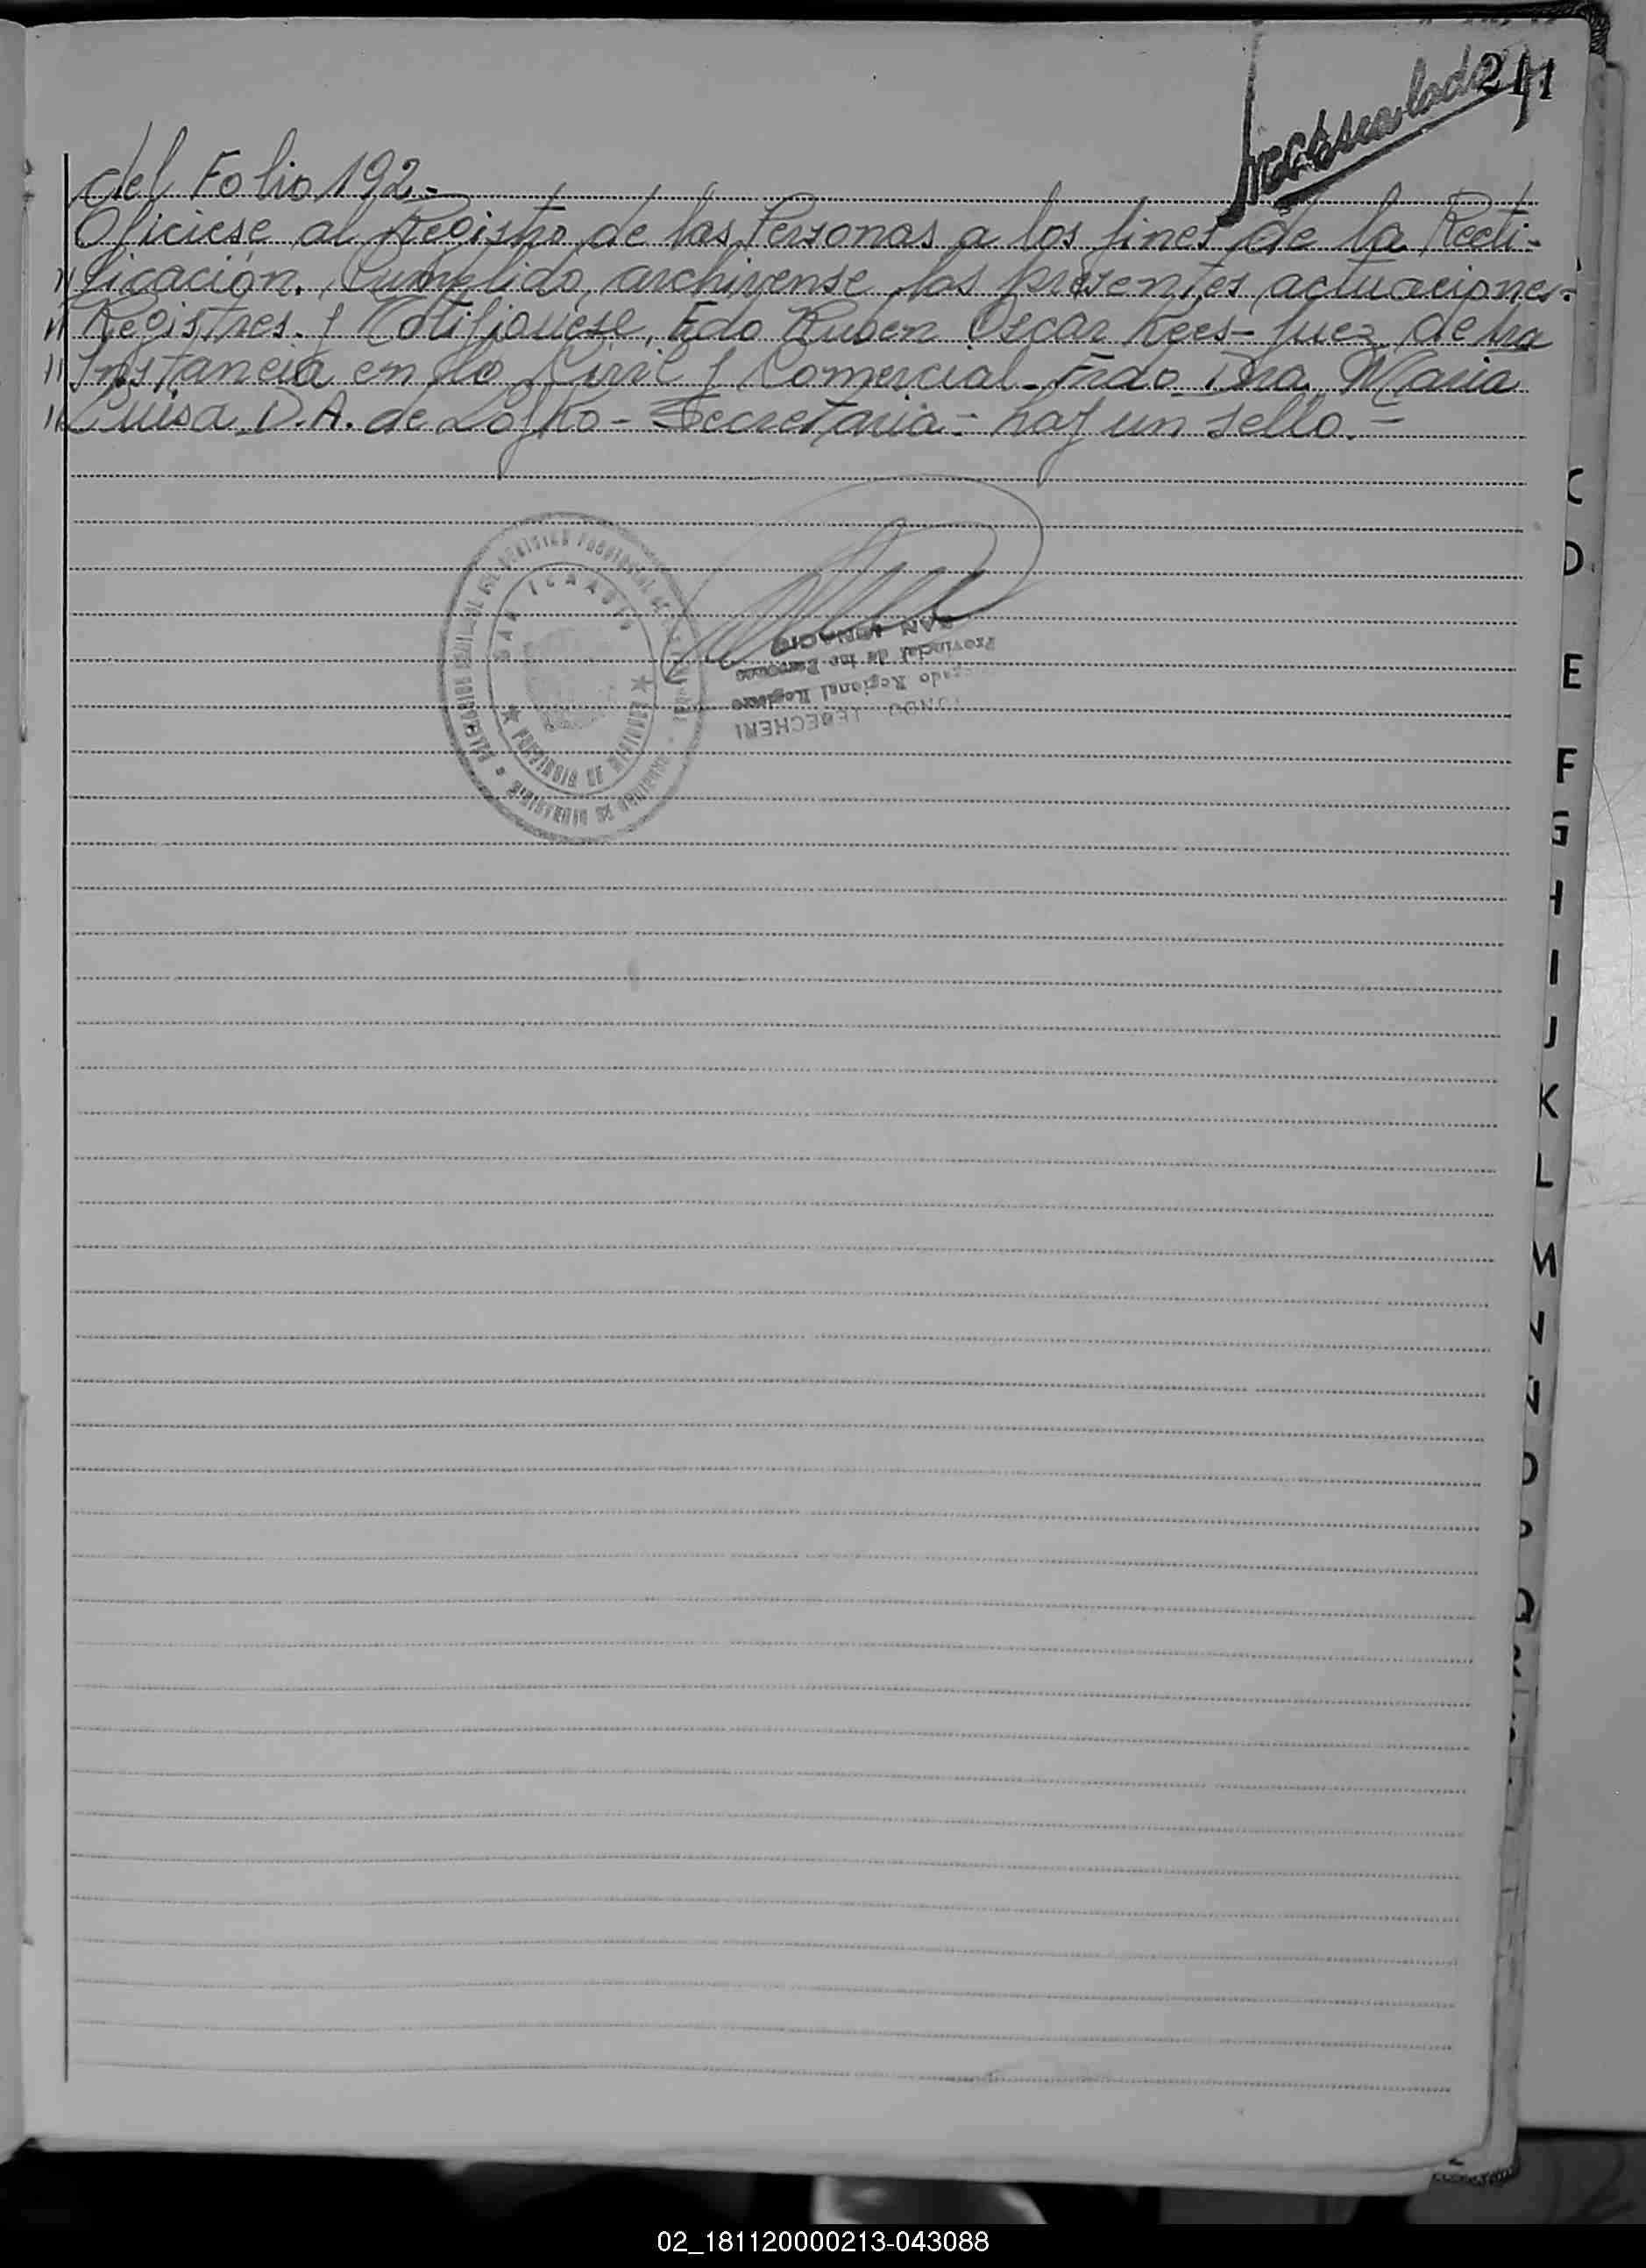 211
del Folio 192.-
Ofíciese al Registro de las Personas a los fines de la Recti-
" ficación. Cumplido, archívense los presentes actuaciones.-
" Registres. y Notifíquese, Fdo Ruben Oscar Rees- Juez de 1ra
" Instancia en lo Civil y Comercial- Fdo Dra Maria
" Luisa D.A. de Lofko- Secretaria- hay un sello.-
SAN IGNACIO
Provincial de las Personas
Regional Registro
LEBECHERI
SAN IGNACIO
PROVINCIA DE MISIONES
C
D
E
F
G
H
I
J
K
L
M
N
N
O
P
Q
02_181120000213-043088